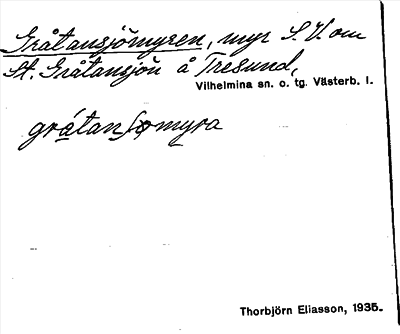 Gråtansjömyren, myr S.V. om
St. Gråtansjön å Tresund,
Vilhelmina sn. o. tg. Västerb. l.
gråtansjomyra
Thorbjörn Eliasson, 1935.